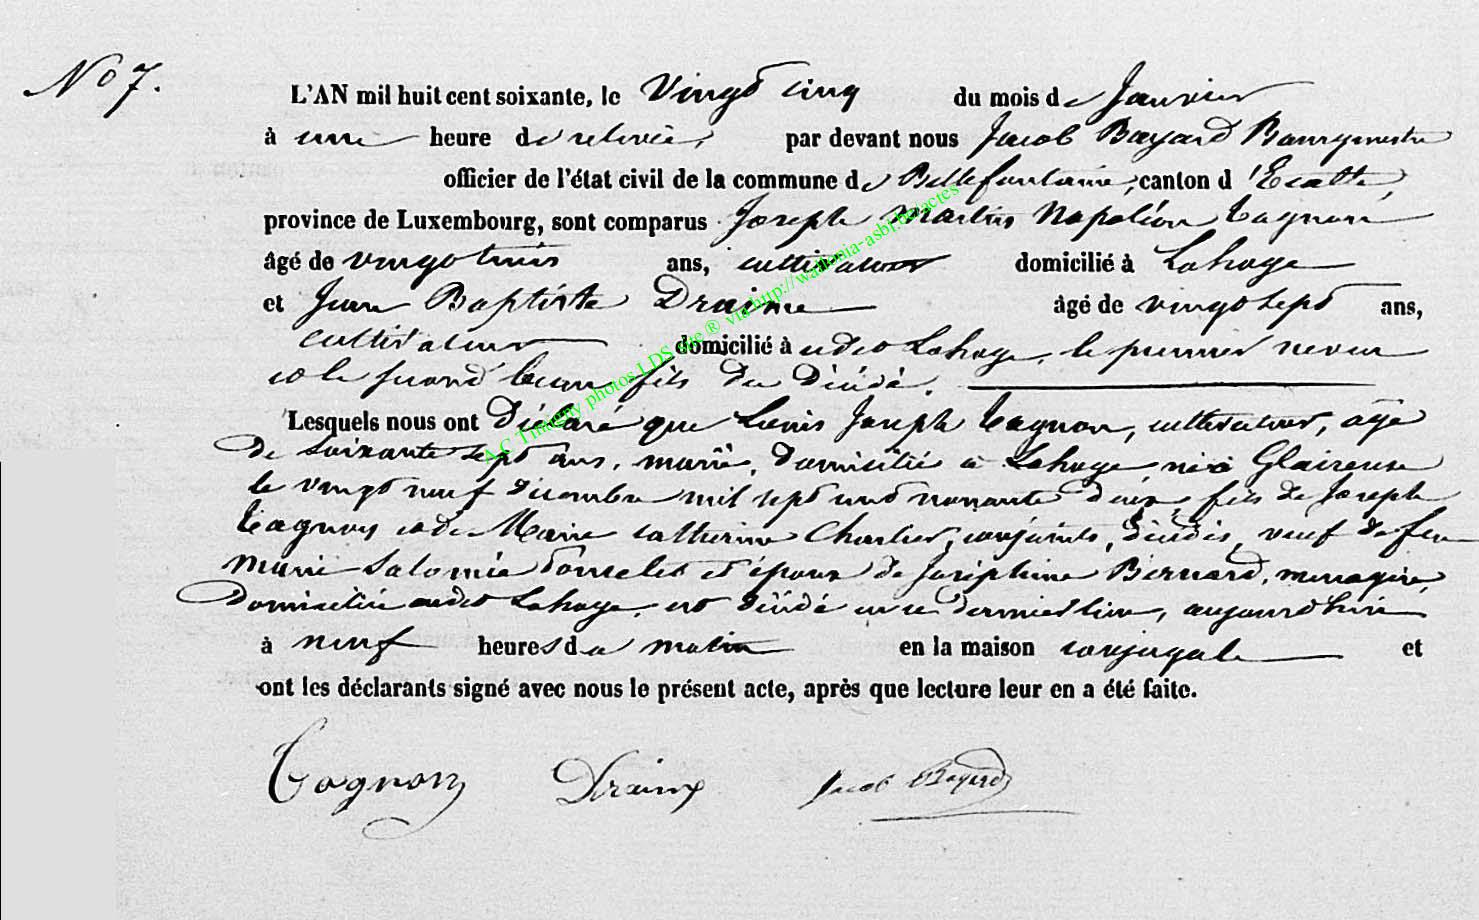 No 7.
L'AN mil huit cent soixante, le Vingt cinq du mois de Janvier
à une heure de relevée, par devant nous Jacob Bayard Bourgmestre
officier de l'état civil de la commune de Bellefontaine, canton d'Etalle,
province de Luxembourg, sont comparus Joseph Martin Napoléon Tagnon
âgé de vingt trois ans, cultivateur domicilié à Lahage
et Jean Baptiste Draime âgé de vingt sept ans,
cultivateur domicilié à udit Lahage, le premier neveu
et le second beau fils du décédé.
Lesquels nous ont déclaré que Louis Joseph Tagnon, cultivateur, âgé
de soixante sept ans, marié, domicilié à Lahage né à Glaireuse
le vingt neuf décembre mil sept cent nonante deux, fils de Joseph
Tagnon et de Marie Catherine Charlier, conjoints, décédés, veuf de feue
Marie Salomée et époux de Joséphine Bernard, menagère,
domiciliée audit Lahage, est décédé en ce dernier lieu, aujourd'hui
à neuf heures du matin en la maison conjugale et
ont les déclarants signé avec nous le présent acte, après que lecture leur en a été faite.
Tagnon Draime Jacob Bayard
A.C Tintigny photos LDS site ® via http://wallonia-asbl.be/actes